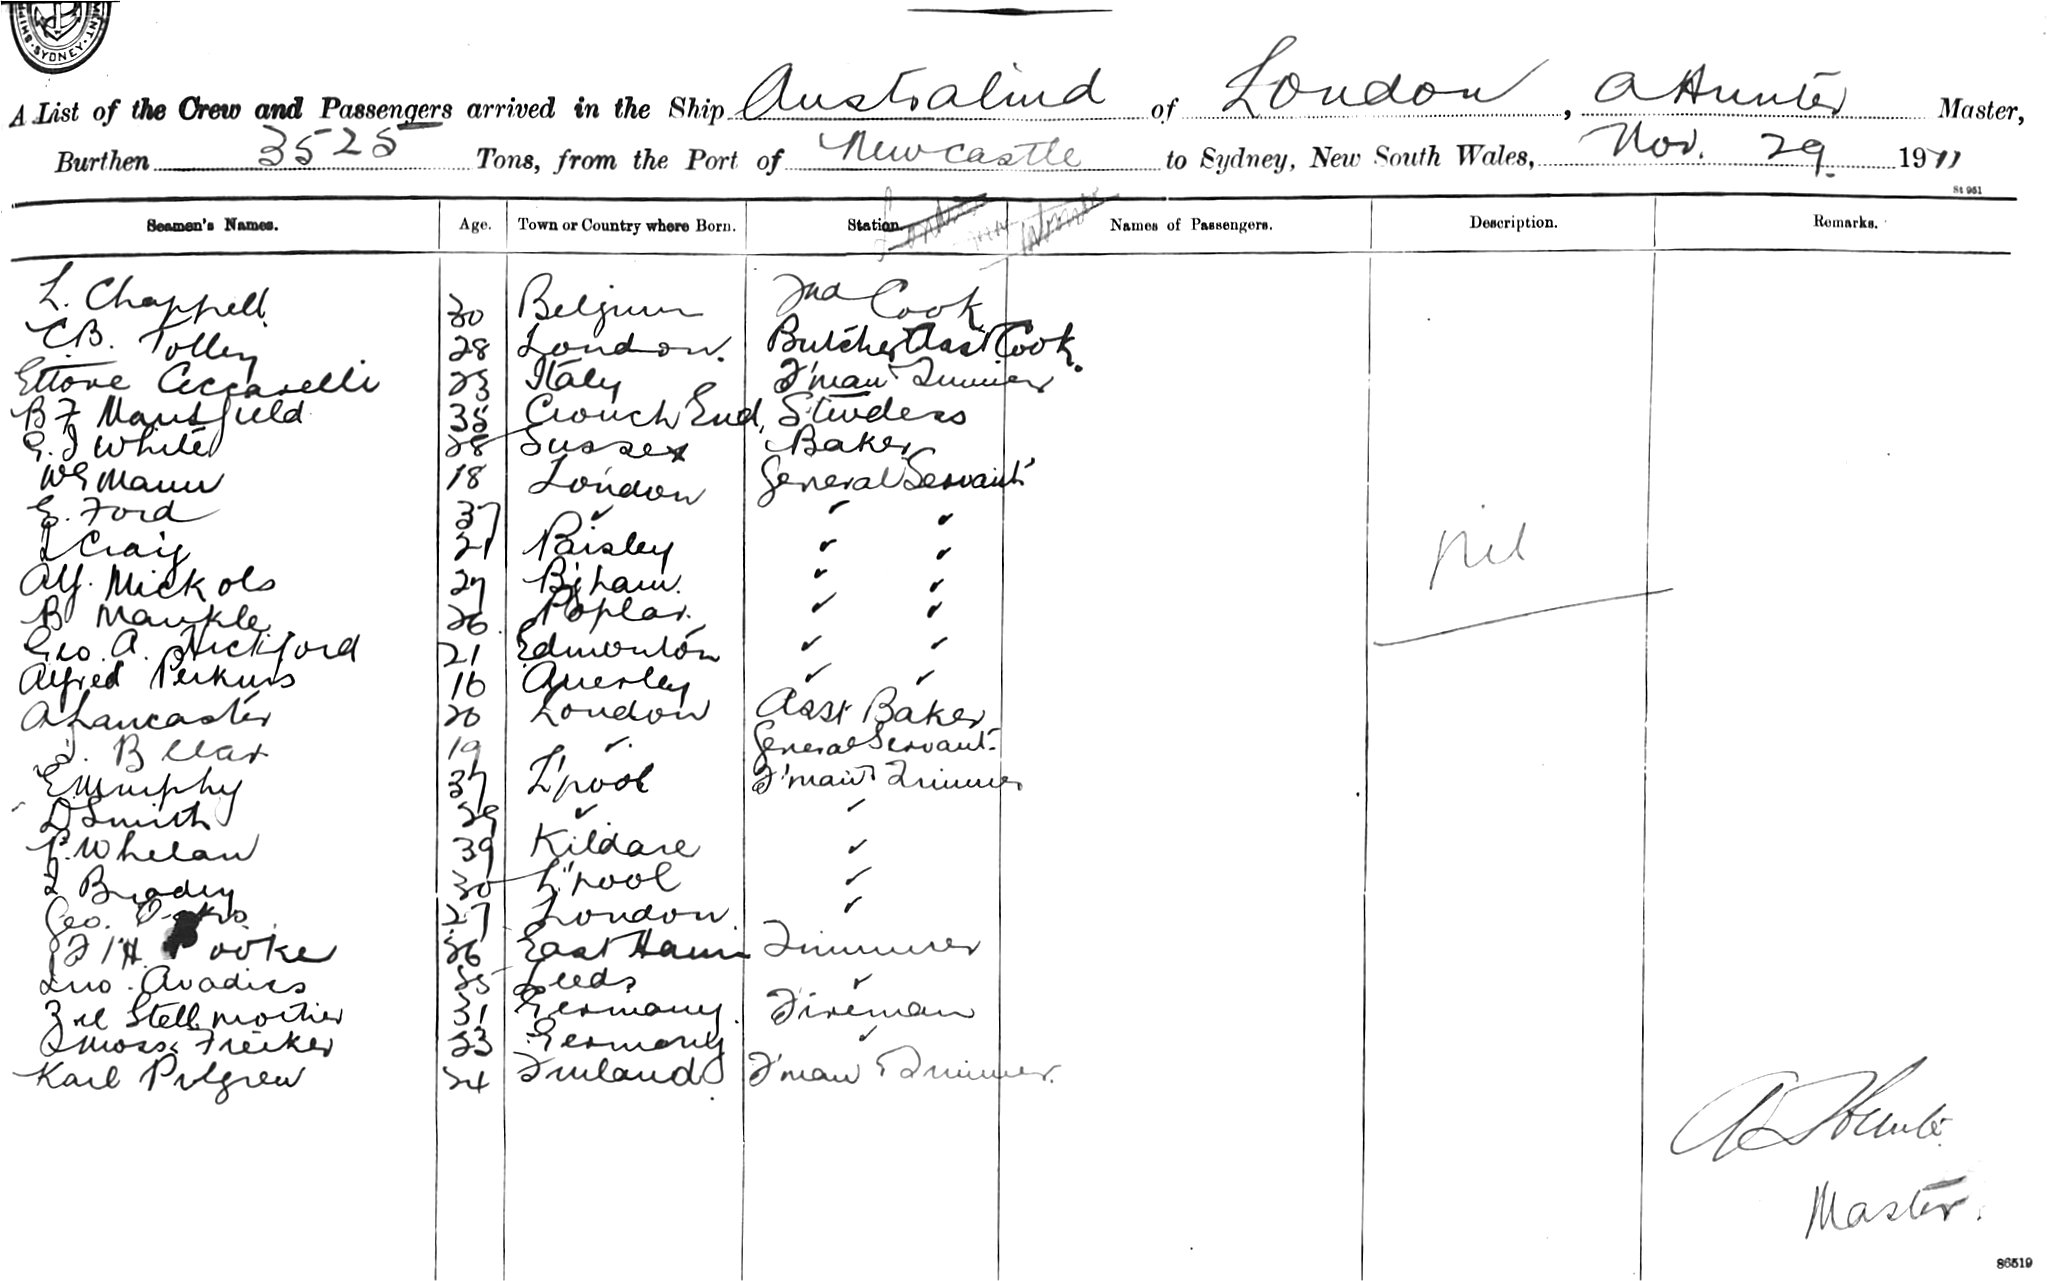 SYDNEY
A List of the Crew and Passengers arrived in the Ship Australind of London, A Hunter Master,
Burthen 3525 Tons, from the Port of Newcastle to Sydney, New South Wales, Nov. 29. 1911
St 951
Seamen's Names. Age. Town or Country where Born. Station Names of Passengers. Description. Remarks.
L. Chappell 30 Belgium 2nd Cook
C.B. Tolley 28 London. Butcher & Asst Cook.
Ettore Ceccarelli 25 Italy F'man & Trimmer
B F Mansfield 35 Crouch End, Stwdess
G. J White 28 Sussex Baker
W G Mann 18 London General Servant
E. Ford 37 " " "
L Craig 21 Paisley " "
Alf. Mickols 27 B'ham. " "
B Mankle 26 Poplar. " "
Geo. A. Hickford 21 Edmonton " "
Alfred Perkins 16 Anerley " "
A Lancaster 20 London Asst Baker
B 19 " General Servant
E Murphy 37 L'pool F'man & Trimmer
D Smith 29 " "
P. Whelan 39 Kildare "
Brady 30 L'pool "
Geo. 27 London "
26 East Ham Trimmer
Jno. Avadies 25 Leeds "
31 Germany. Fireman
Fricker 23 Germany "
Karl 24 Finland F'man & Trimmer.
nil
A Hunter
Master.
86519